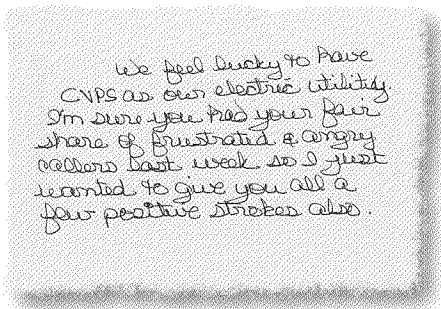 We feel lucky to have
CVPS as our electric utility.
I'm sure you had your fair
share of frustrated & angry
callers last week so I just
wanted to give you all a
few positive strokes also.